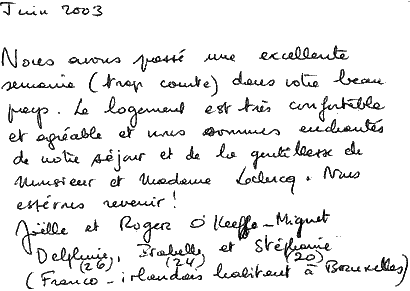 Juin 2003
Nous avons passé une excellente
semaine (trop courte) dans votre beau
pays. Le logement est très confortable
et agréable et nous sommes enchantés
de notre séjour et de la gentillesse de
Monsieur et Madame Leclercq. Nous
espérons revenir !
Joëlle et Roger O'Keeffe-Mignet
Delphine, Isabelle et Stéphanie
(26) (24) (20)
(Franco-irlandais habitant à Bruxelles)